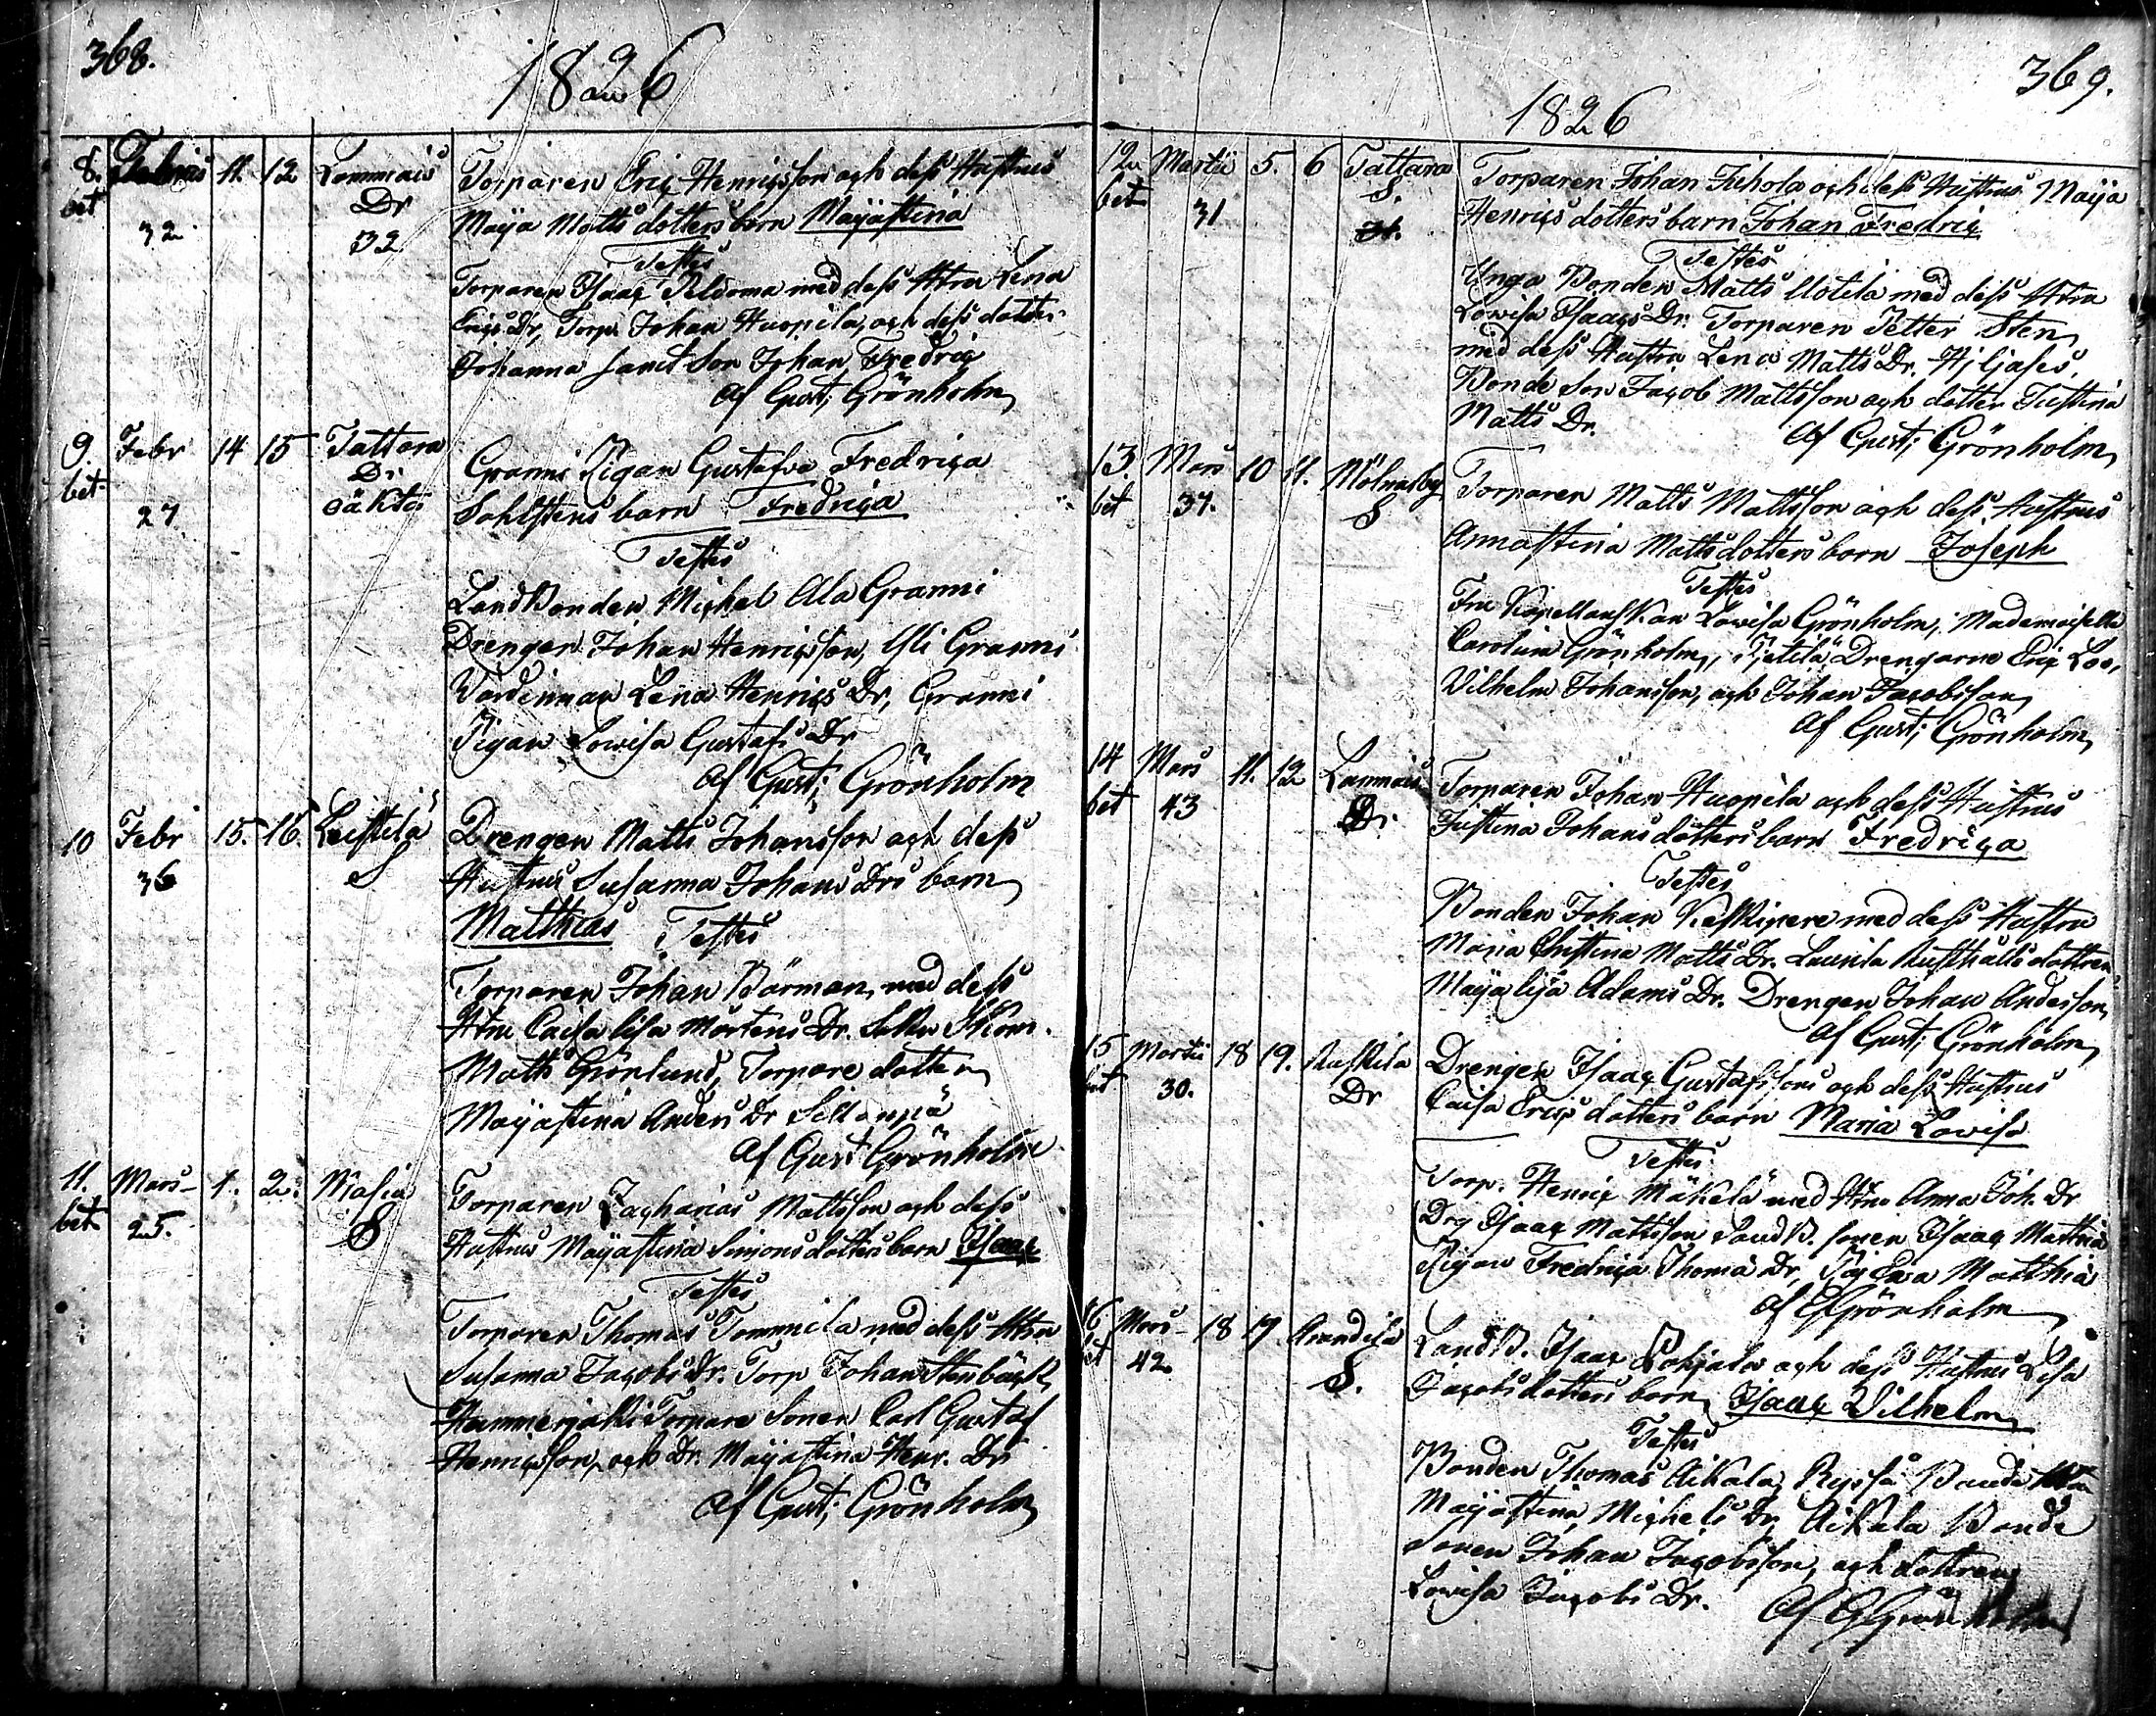 368.
1826
8. Febrii 11. 12 Lammais Torparen Eric Henricsson och dess Hustrus
bet 32 Dr 32 Maija Matts dotters barn Maijastina
Testes
Torparen Isaac Peldoma med dess Htru Lena
Erics Dr, Torp. Johan Huopila, och dess dotter
Johanna samt Son Johan Fredric
af Gust; Grönholm
9 Febr 14 15 Tattara Granni Pigan Gustafva Fredrica
bet 27 Dr oäkta Sohlstens barn Fredrica
Testes
LandBonden Michel Ala Granni
Drengen Johan Henricsson, Yli Granni
Värdinnan Lena Henrics Dr, Granni
Pigan Lowisa Gustafs Dr
af Gust; Grönholm
10 Febr 15. 16. Leistilä Drengen Matts Johansson och dess
36 S Hustrus Susanna Johans Drs barn
Matthias Testes
Torparen Johan Börman, med dess
Htru Caisa Lisa Mårtens Dr.
Matts Grönlund, Torpare dotter
Maijastina Anders Dr Sillanpä
af Gust Grönholm
11. Mars 1. 2. Masia Torparen Zacharias Mattsson och dess
bet 25. S Hustrus Maijastina Simonsdotters barn Isaac
Testes
Torparen Thomas Tommila med dess Htru
Susanna Jacobs Dr. Torp Johan Stenbäck
Hammerjoki Torpare Sonen Carl Gustaf
Henricsson, och Dr. Maijastina Henr. Dr
af Gust; Grönholm
369.
1826
12 Martii 5. 6 Tattara Torparen Johan Juhola och dess Hustrus Maija
bet 31 S. Henrics dotters barn Johan Fredric
Testes
Unga Bonden Matts Uotila med dess Htru
Lowisa Isaacs Dr. Torparen Petter Sten
med dess Hustru Lena Matts Dr.
Bonde Son Jacob Mattsson och dotter Justina
Matts Dr.
af Gust; Grönholm
13. Mars 10 11. Mölnarby Torparen Matts Mattsson och dess Hustrus
bet 37. S Annastina Mattsdotters barn Joseph
Testes
Fru Kapellanskan Lowisa Grönholm, Mademoiselle
Carolina Grönholm, Pietilä Drengarne Eric
Vilhelm Johansson, och Johan Jacobsson
af Gust; Grönholm
14 Mars 11. 12 Lammais Torparen Johan Huopila och dess Hustrus
bet 43 Dr. Justina Johans dotters barn Fredrica
Testes
Bonden Johan Keskipere med dess Hustru
Maria Christina Matts Dr. Laurila Rusthålls dottren
Maija Lisa Adams Dr. Drengen Johan Andersson
af Gust; Grönholm
15 Martii 18 19. Ruskila Drengen Isaac Gustafssons och dess Hustrus
bet 30. Dr Caisa Erics dotters barn Maria Lowisa
Testes
Torp. Henric Mäkelä med Htru Anna Joh. Dr
Drg Isaac Mattsson LandB. sonen Isaac
Pigan Fredrica Thomæ Dr, Pig Eva
af G Grönholm
16 Mars 18 19. LandB. Isaac Pohjala och dess Hustrus Lisa
bet 42 S. Jacobsdotters barn Isaac Vilhelm
Testes
Bonden Thomas Aikala, Ryssä Bonde
Maijastina Michels Dr, Aikala Bonde
Sonen Johan Jacobsson, och dottren
Lowisa Jacobs Dr.
af G Grönholm